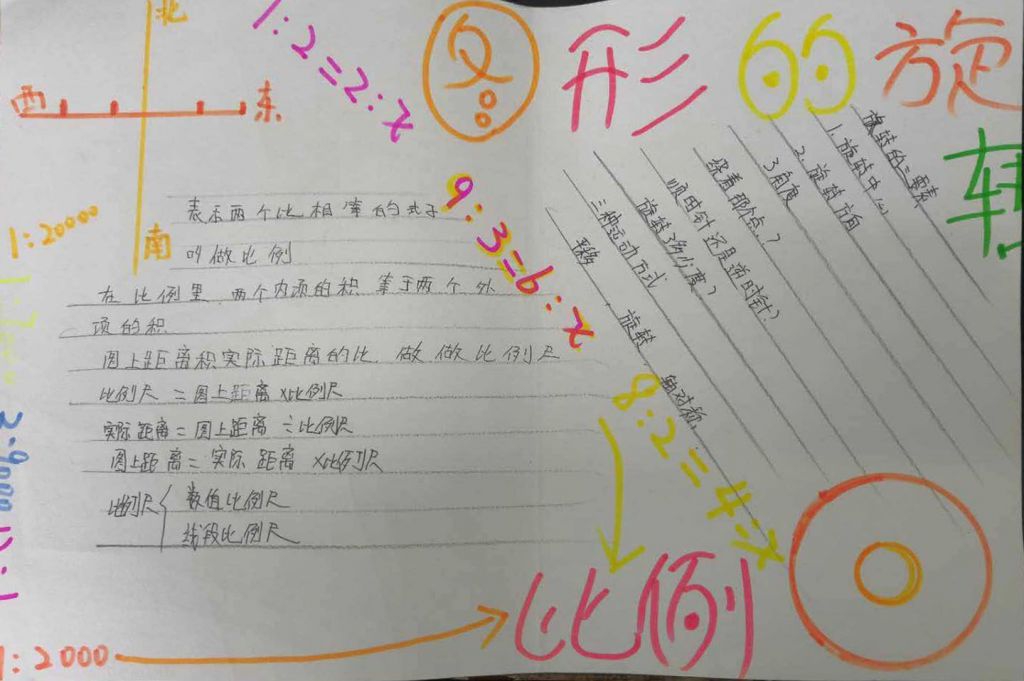 北
西
东
南
1:2=2:x
图形的旋
转
旋转的三要素
1.旋转中心
2.旋转方向
3角度
绕着那个点？
顺时针还是逆时针？
旋转多少度？
三种运动方式
平移 旋转 轴对称
表示两个比相等的式子
叫做比例
在比例里，两个内项的积等于两个外
项的积
图上距离积实际距离的比，做做比例尺
比例尺=图上距离×比例尺
实际距离=图上距离÷比例尺
图上距离=实际距离×比例尺
比例尺{数值比例尺
线段比例尺
9:3=6:x
8:2=4:x
1:20000
1:2000
比例